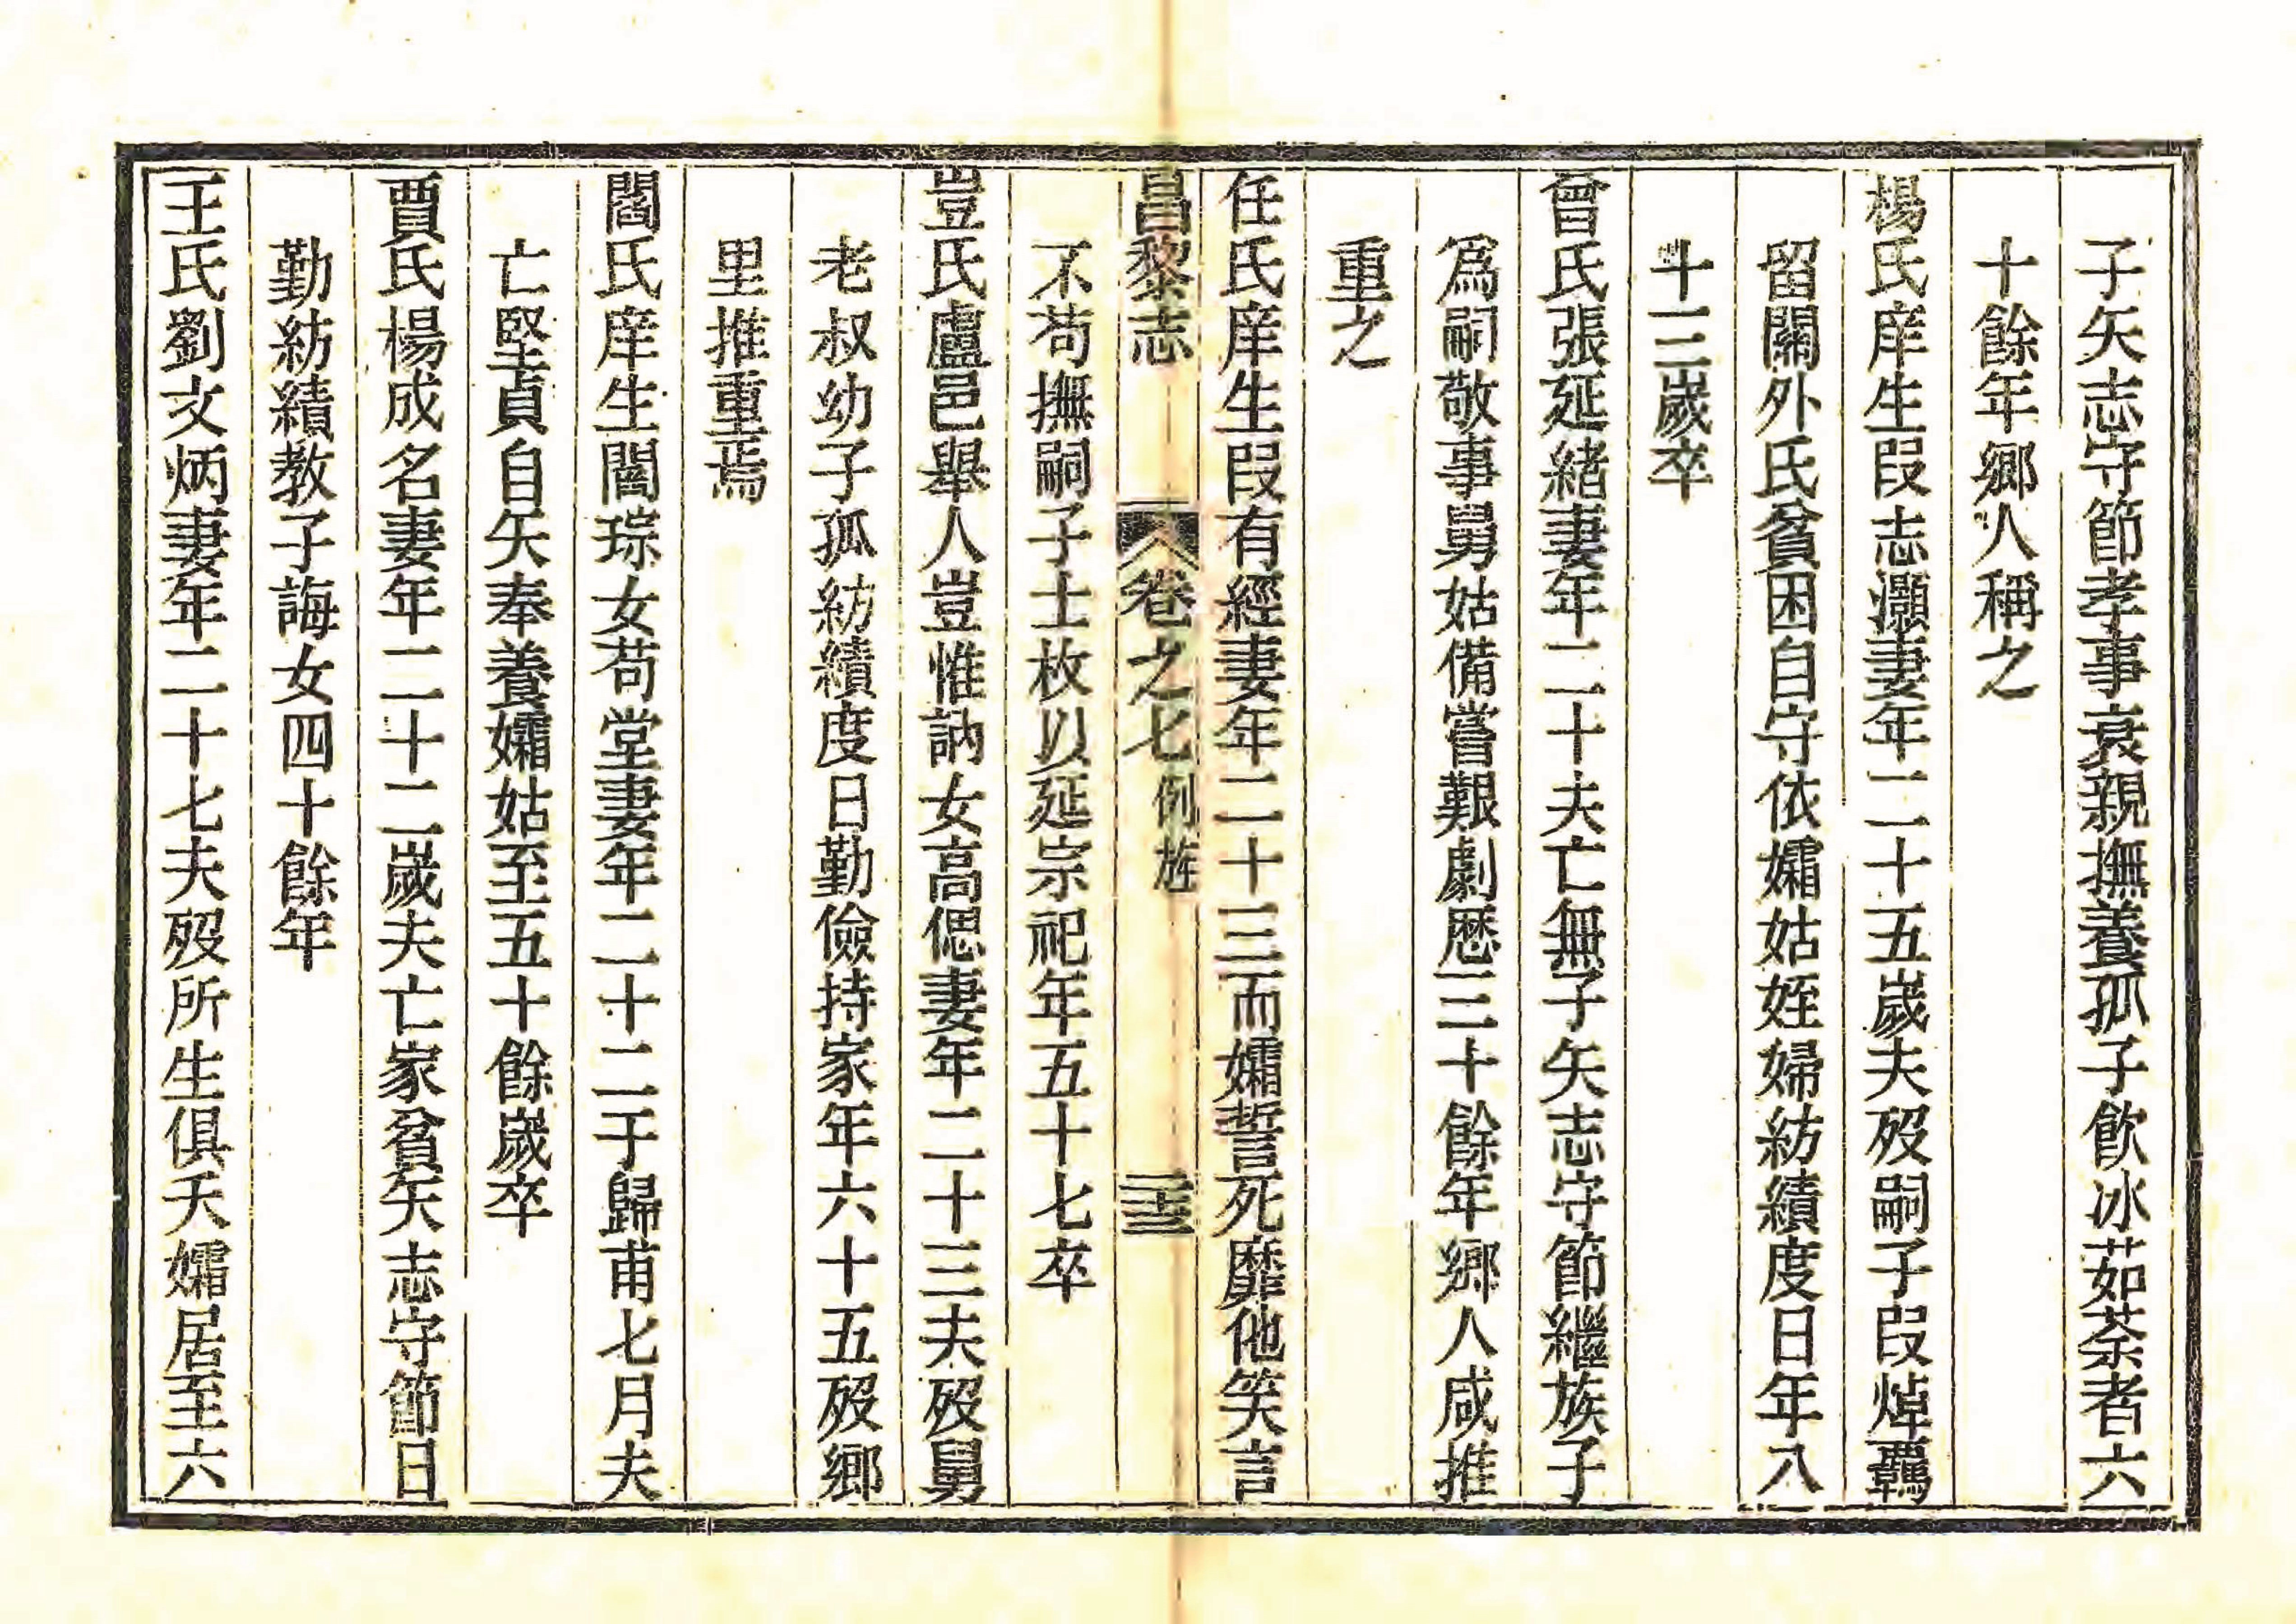 子矢志守節孝事衰親撫養孤子飲冰茹荼者六
十餘年鄉人稱之
楊氏庠生段志灝妻年二十五歲夫歿嗣子段焯覊
留關外氏貧困自守依孀姑姪婦紡績度日年八
十三歲卒
曾氏張延緒妻年二十夫亡無子矢志守節繼族子
爲嗣敬事舅姑備嘗艱劇歷三十餘年鄉人咸推
重之
任氏庠生段有經妻年二十三而孀誓死靡他笑言
昌黎志 卷之七 例旌 三十三
不苟撫嗣子士枚以延宗祀年五十七卒
豈氏盧邑舉人豈惟訥女高偲妻年二十三夫歿舅
老叔幼子孤紡績度日勤儉持家年六十五歿鄉
里推重焉
閻氏庠生閻琮女苟堂妻年二十二于歸甫七月夫
亡堅貞自矢奉養孀姑至五十餘歲卒
賈氏楊成名妻年二十二歲夫亡家貧矢志守節日
勤紡績教子誨女四十餘年
王氏劉文炳妻年二十七夫歿所生俱夭孀居至六